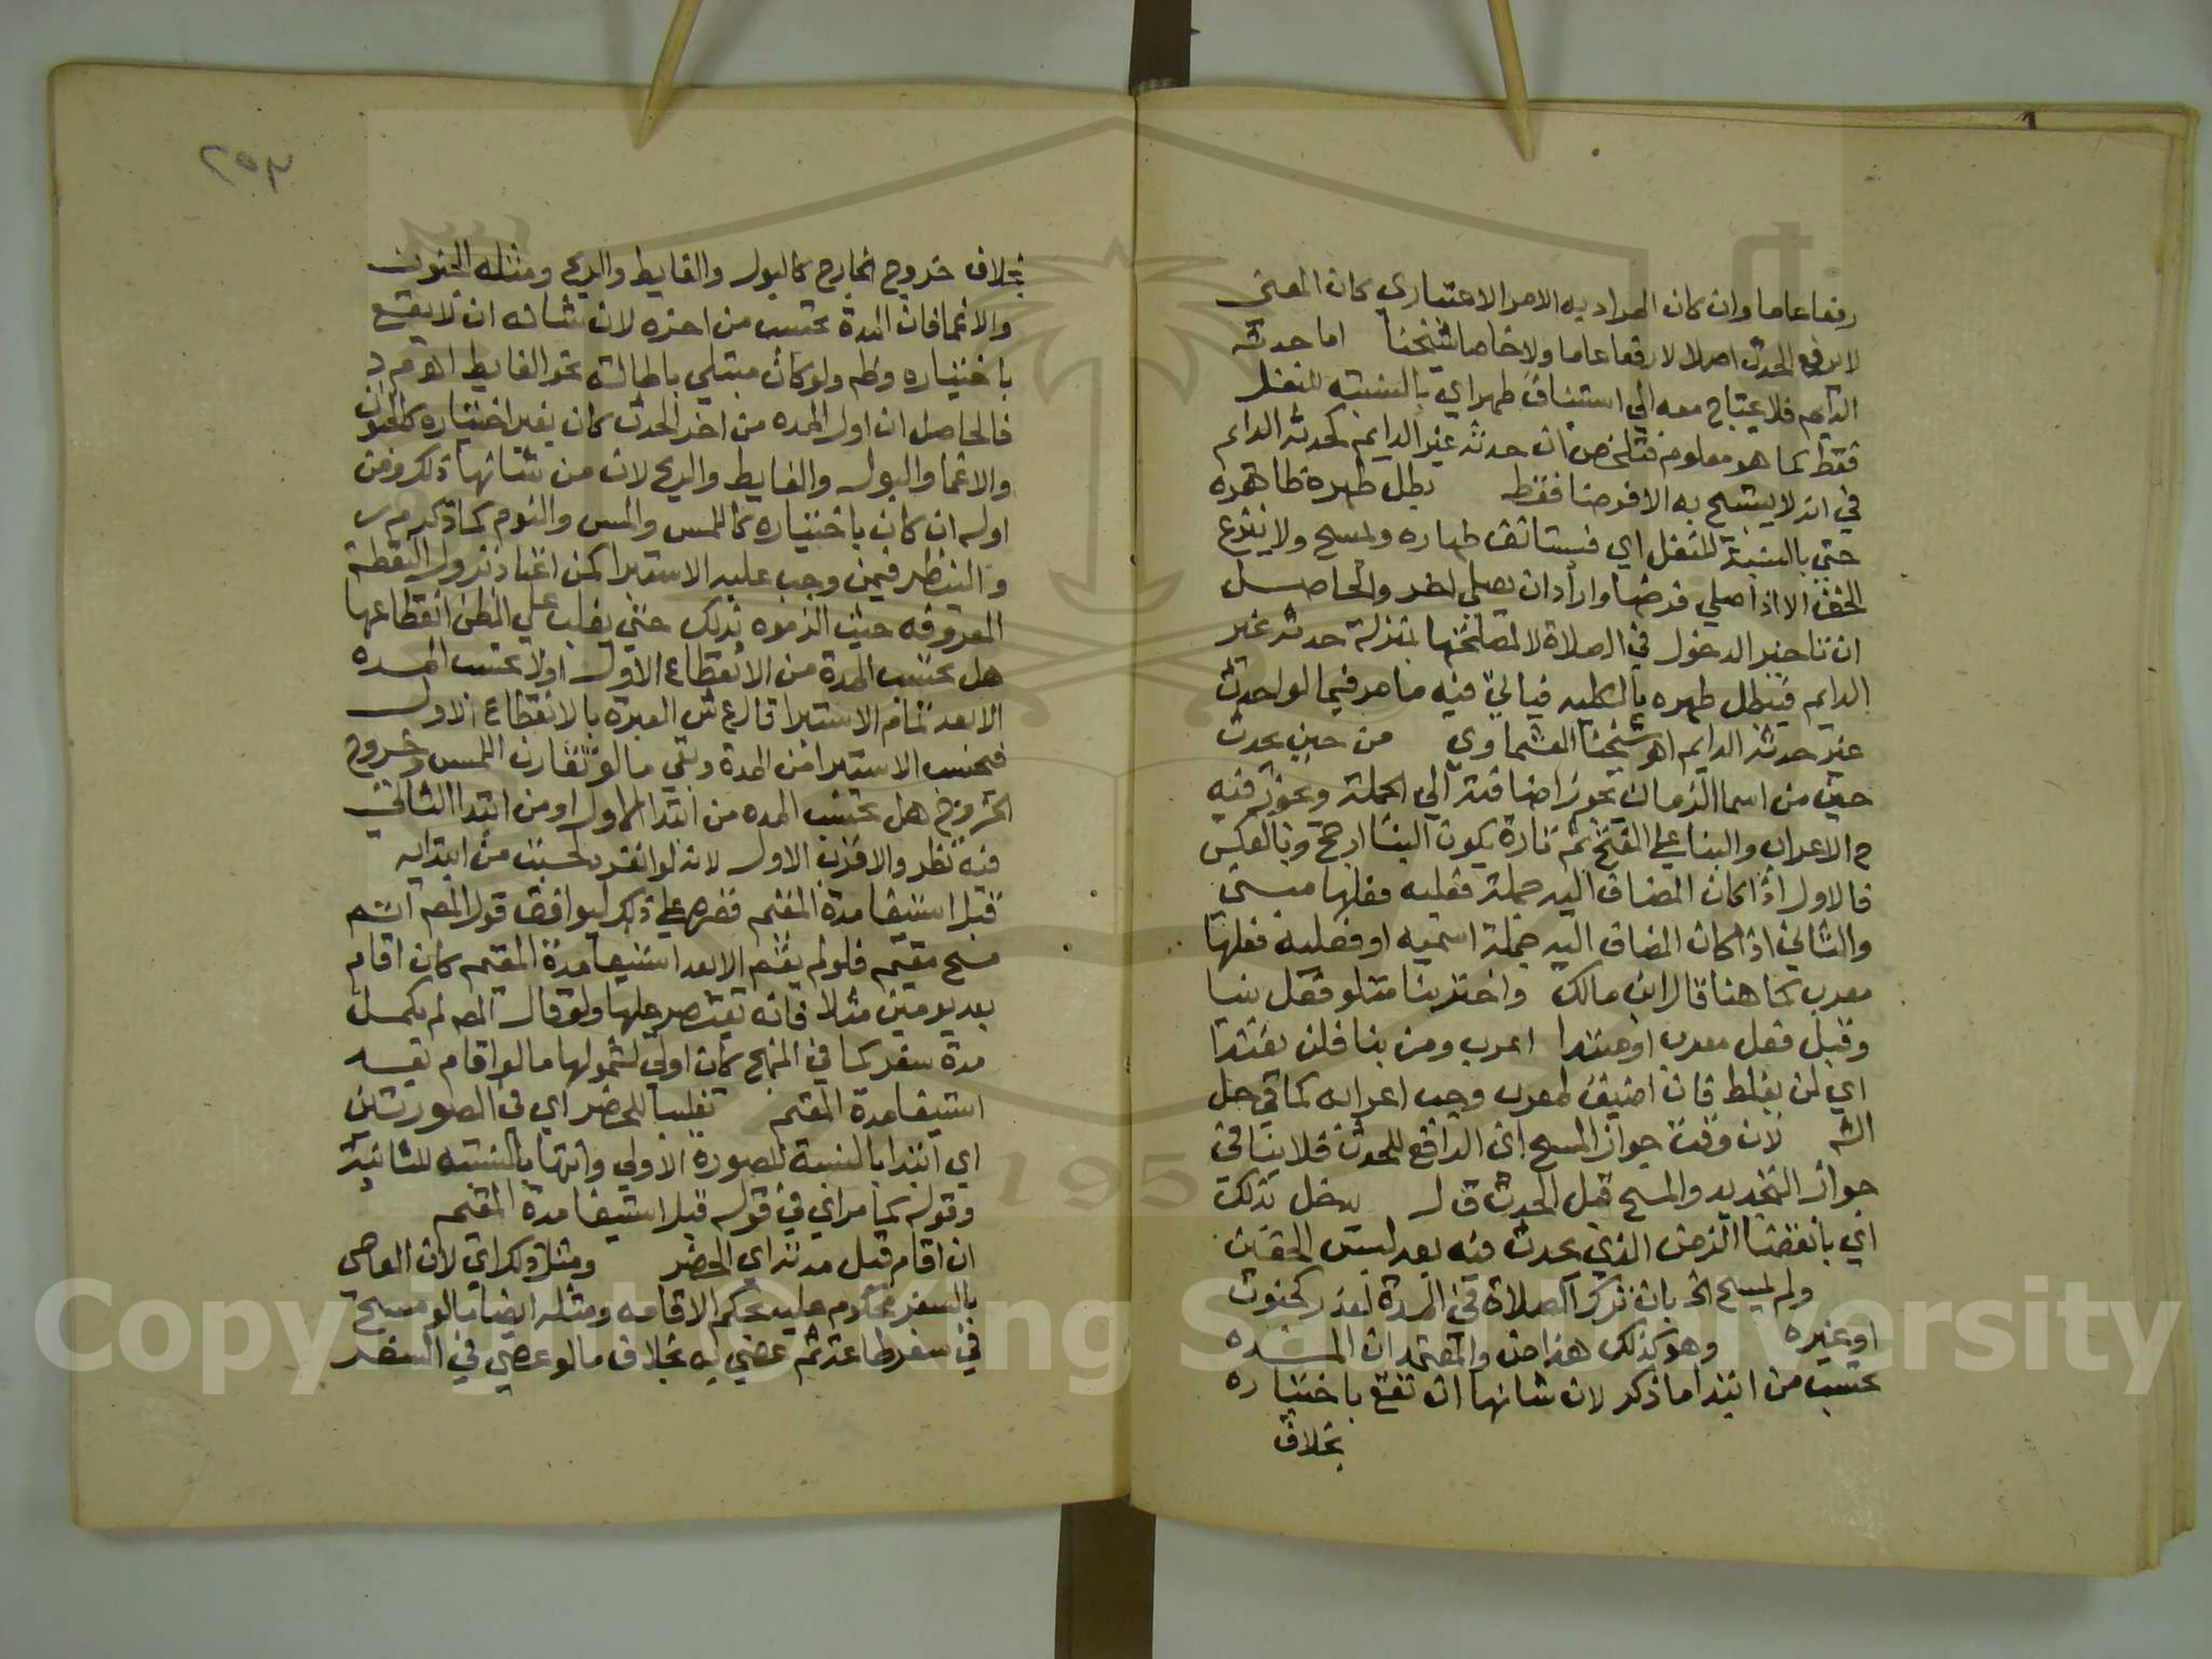 رفعا عاما وان كان المراد به الامر الاعتباري كان المعنى
لا يرفع الحدث اصلا لا رفعا عاما ولا خاصا شيخنا اما حدثه
الدايم فلا يحتاج معه الي استئناف طهر اي بالنسبة للنفل
فقط كما هو معلوم فتلخص ان حدثه غير الدايم كحدثه الدايم
في انه لا يستبيح به الا فرضا فقط بطل طهره ظاهره
حتي بالنسبة للنفل اي فيستانف طهاره ولمسح ولا ينزع
الخف الا اذا صلي فرضا واراد ان يصلي اخر والحاصل
ان تاخير الدخول في الصلاة لا لمصلحتها بمنزلة حدث غير
الدايم فيبطل طهره بالكليه فياتي فيه ما مر فيما لو احدث
غير حدثه الدايم اهو شيخنا العشماوي من حين يحدث
حين من اسما الزمان يجوز اضافته الي الجملة ويجوز فيه
ح الاعراب والبنا علي الفتح ثم تارة يكون البنا ارجح وبالعكس
فالاول اذا كان المضاف اليه جملة فعليه فعلها مبني
والثاني اذا كان المضاف اليه جملة اسميه او فعليه فعلها
معرب كما هنا قال ابن مالك واختر بنا متلو فعل بنيا
وقبل فعل معرب او مبتدا اعرب ومن بنا فلن يفندا
اي لن يغلط فان اضيف لمعرب وجب اعرابه كما في حل
الشه لان وقت جواز المسح اي الرافع للحدث فلا ينافي
جواز التجديد والمسح قبل الحدث ق ل بدخل بذلك
اي بانقضا الزمن الذي يحدث فيه بعد لبس الخفين
ولم يمسح الخ بان ترك الصلاة في المدة لعذر كجنون
او غيره وهو كذلك هذا من والمعتمد ان المده
تحسب من ابتدا ما ذكر لان شانها ان تقع باختياره
بخلاف
٢٥٣
بخلاف خروج الخارج كالبول والغايط والريح ومثله الجنون
والاغما فان المدة تحتسب من اخره لان شانه ان لا يقع
باختياره وظم ولو كان مبتلي باطالته نحو الغايط اهو م د
فالحاصل ان اول المده من اخر الحدث كان بغير اختياره كالجنون
والاغما والبول والغايط والريح لان من شانها ذلك ومن
اوله ان كان باختياره كاللمس والمس والنوم كما ذكره م ر
والنظر فيمن وجب عليه الاستبرا كمن اعتاد نزول النقطة
المعروفه حيث الزموه بذلك حتي يغلب علي الظن انقطاعها
هل تحتسب المدة من الانقطاع الاول او لا تحتسب المده
الا بعد تمام الاستبرا قال ع ش العبرة بالانقطاع الاول
فيحسب الاستبرا من المدة وبقي ما لو تقارن اللمس وخروج
الخروج هل تحتسب المده من ابتدا الاول او من ابتدا الثاني
فيه نظر والاقرب الاول لانه لو انفرد لحسبت من ابتدايه
قبل استيفا مدة المقيم قصره علي ذلك ليوافق قول المصه اتم
مسح مقيم فلو لم يقم الا بعد استيفا مدة المقيم كان اقام
بعد يومين مثلا فانه يقتصر عليها ولو قال المصه لم يكمل
مدة سفر كما في المنهج كان اولي لشمولها ما لو اقام بعد
استيفا مدة المقيم تغليبا للحضر اي في الصورتين
اي ابتدا بالنسبة للصورة الاولي وانتها بالنسبه للثانية
وقوله كما مر اي في قوله قبل استيفا مدة المقيم
ان اقام قبل مدته اي الحضر ومثل ذلك اي لان العاصي
بالسفر محكوم عليه بحكم الاقامه ومثله ايضا ما لو مسح
في سفر طاعة ثم عصي به بخلاف ما لو عصي في السفر
Copyright © King Saud University
1957